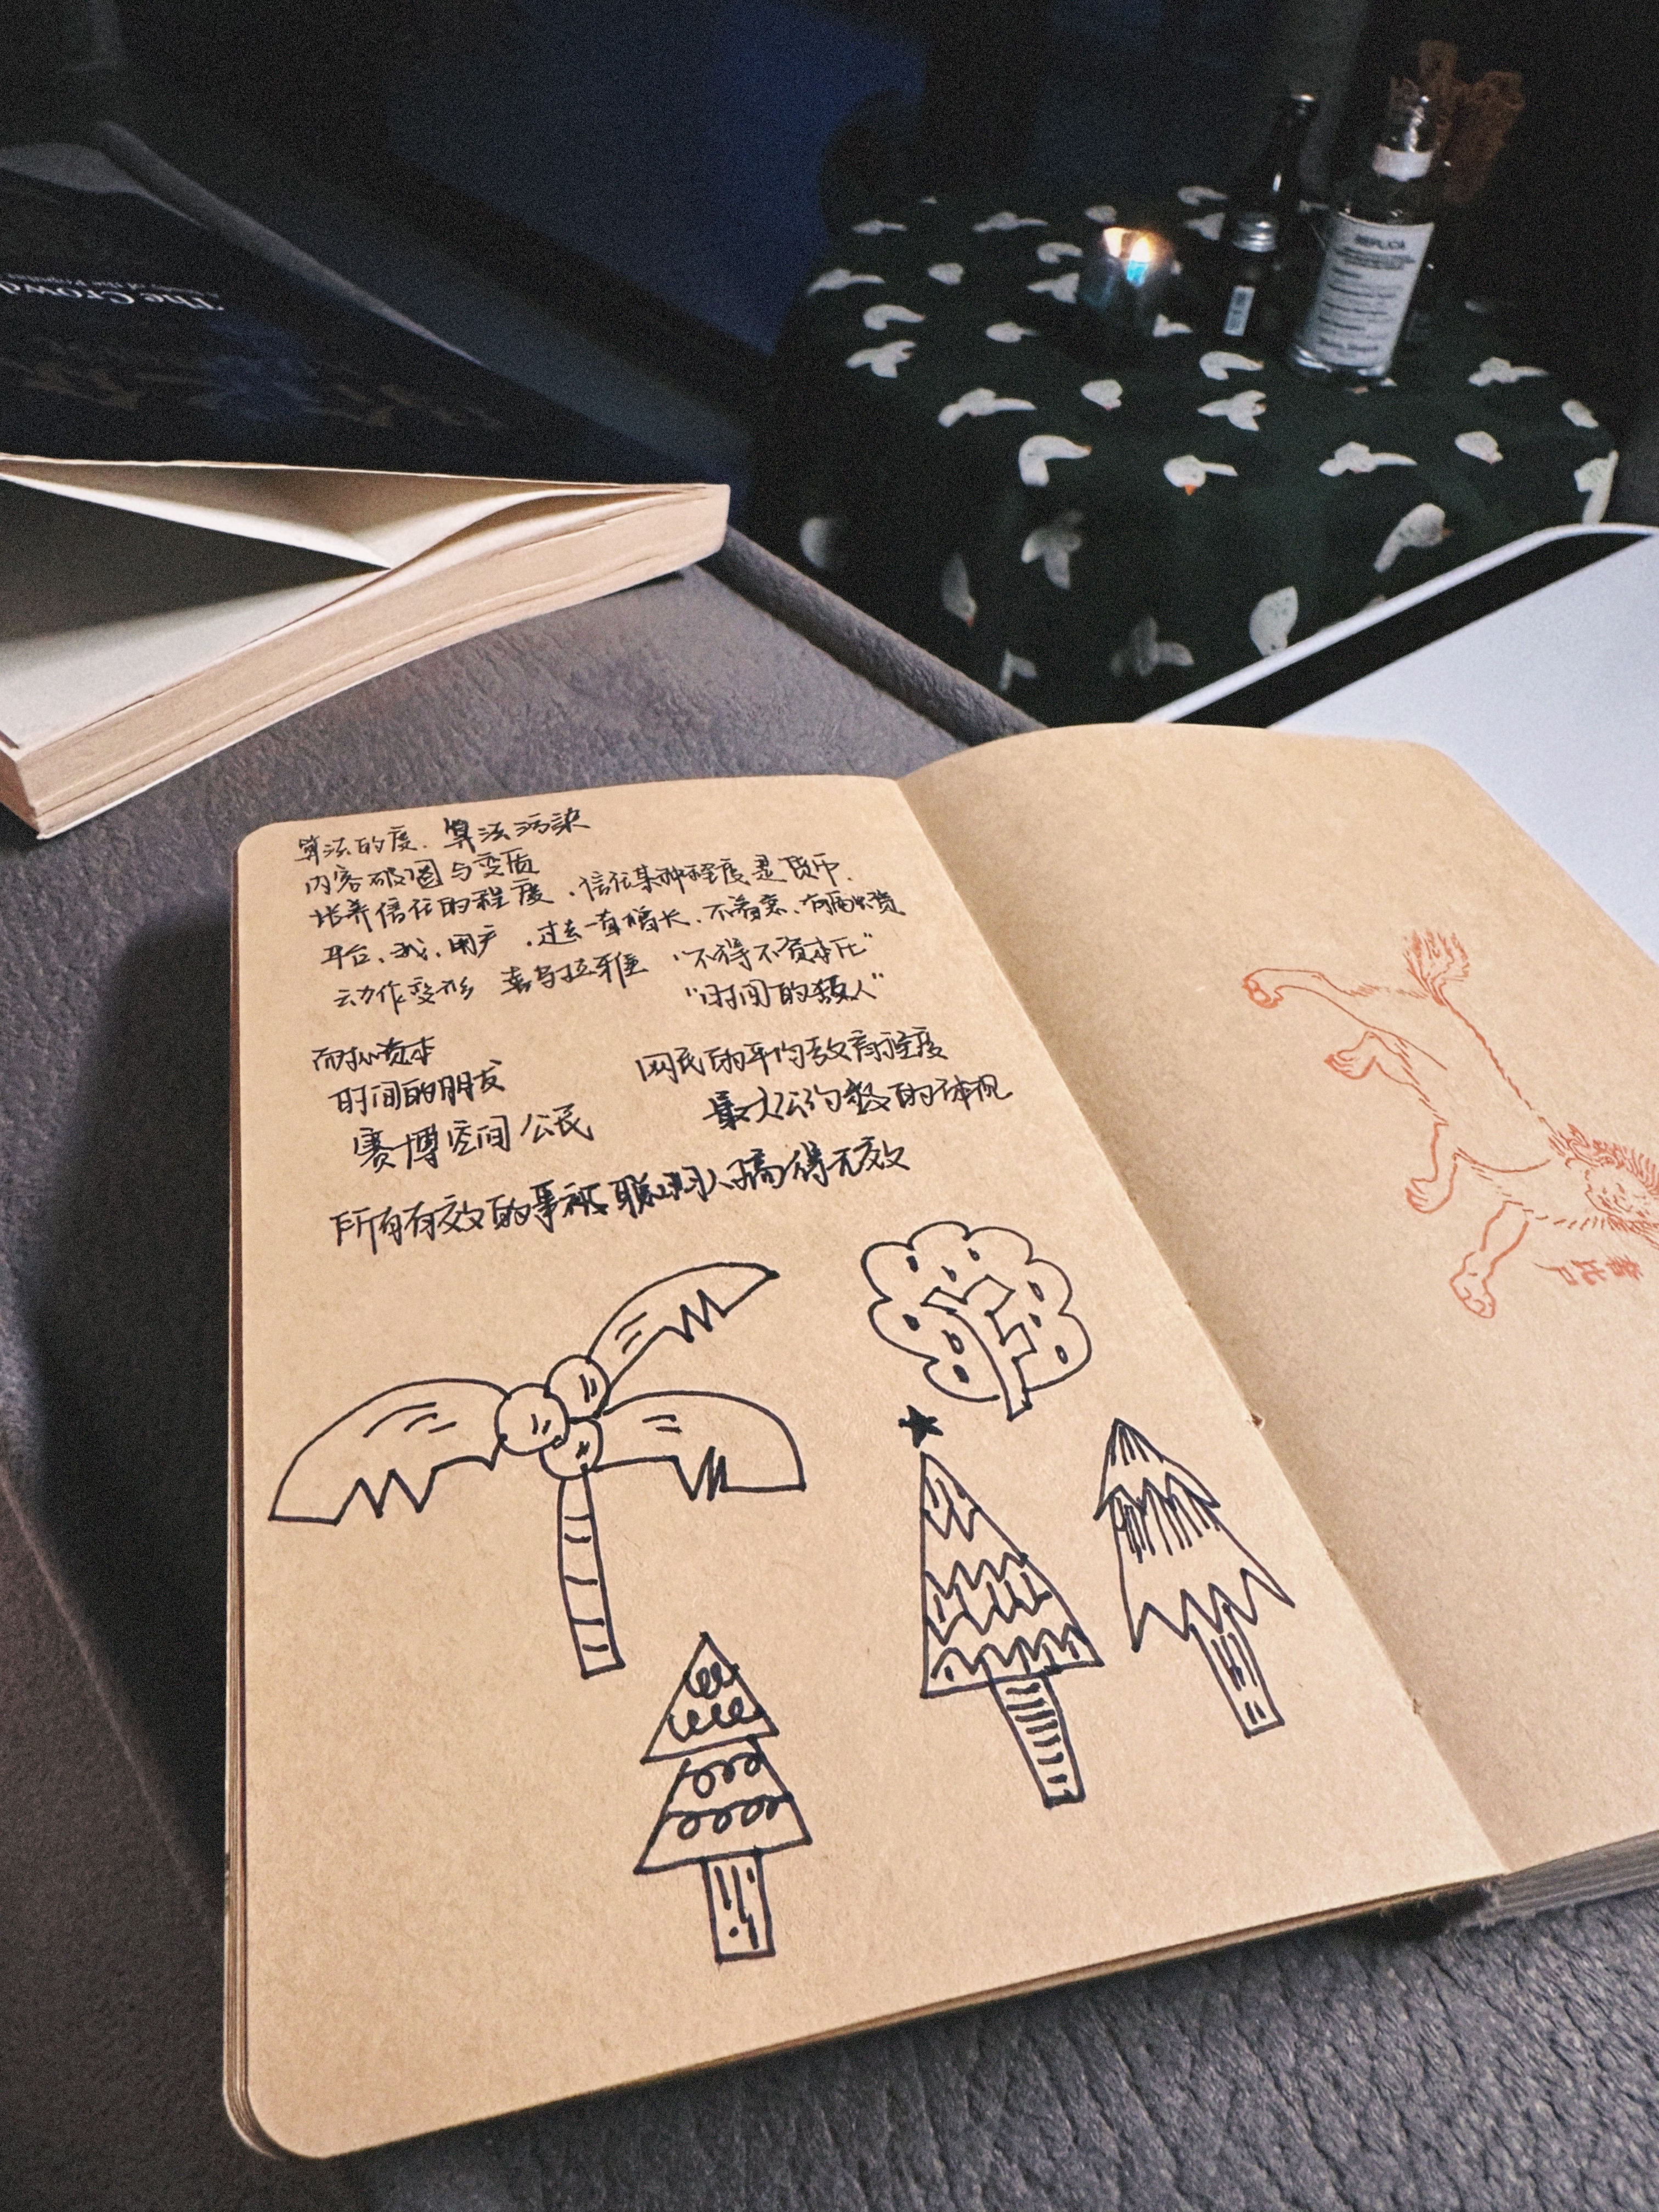 The Crowd
REPLICA
算法的度、算法污染
内容破圈与变质
培养信任的程度、信任某种程度是货币、
平台、我、用户、过去一直增长、不着急、有融资
动作变形 喜马拉雅 “不得不资本化”
“时间的敌人”
而抗资本
时间的朋友
赛博空间公民
网民的平均教育程度
最大公约数的体现
所有有效的事被聪明人搞得无效